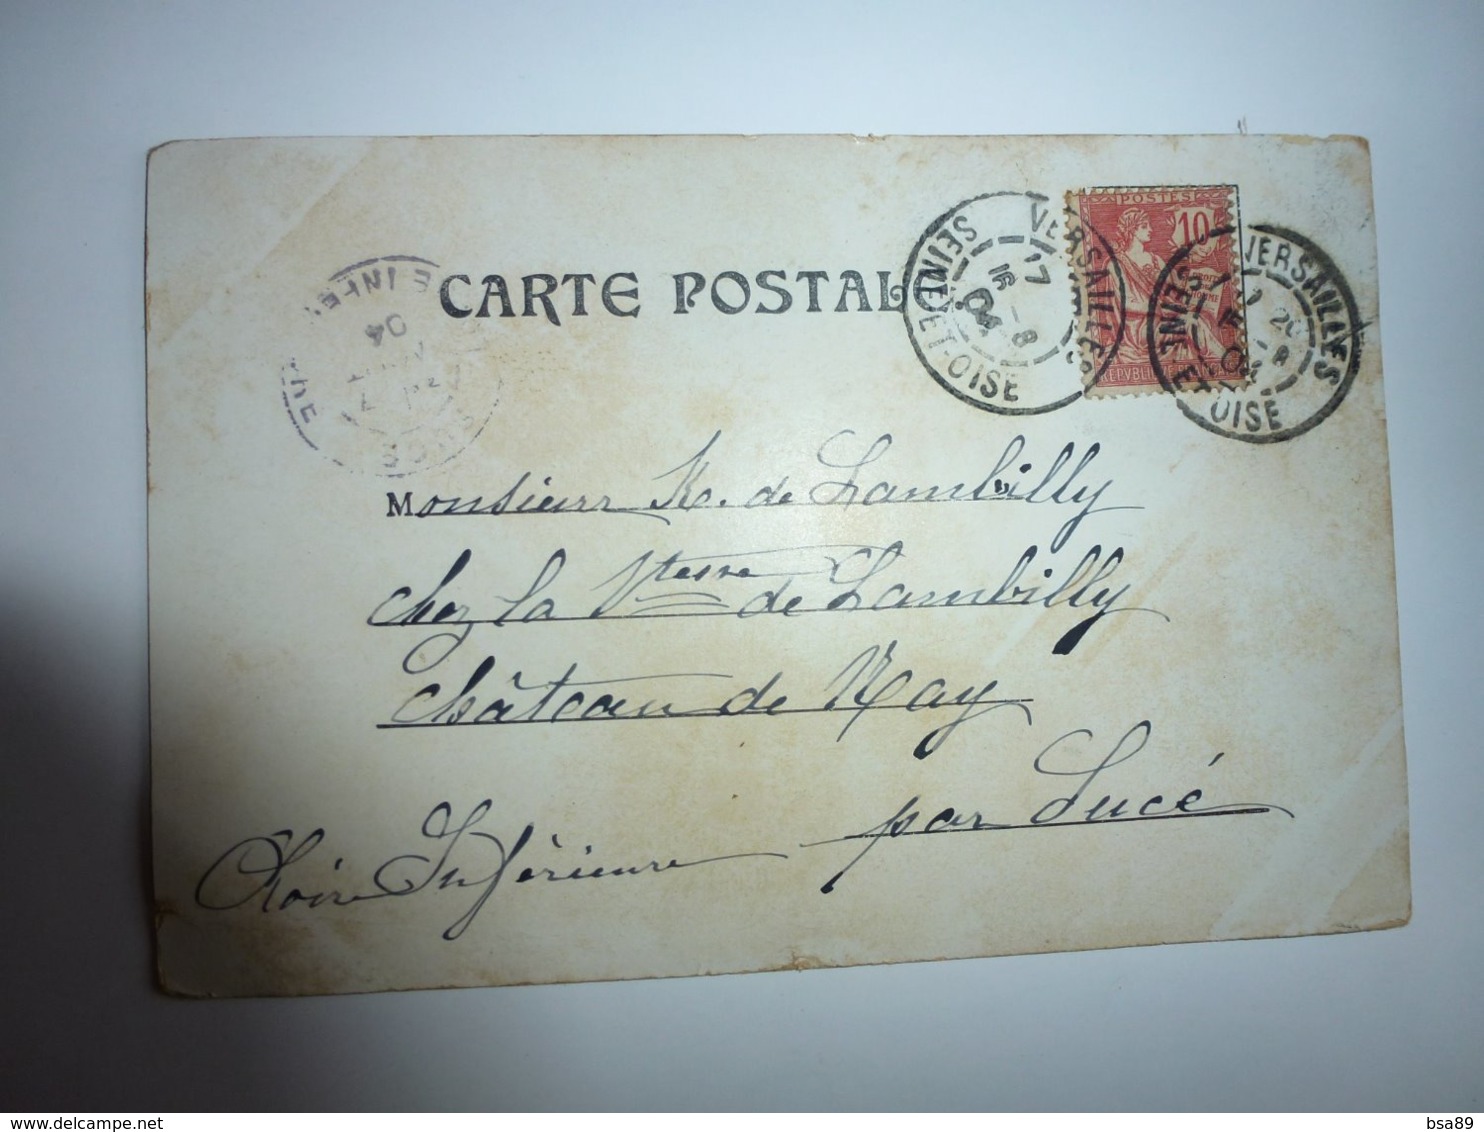 CARTE POSTALE
POSTES
10
REPVBLIQVE FRANÇAISE
VERSAILLES
17
16 - 8
04
SEINE-ET-OISE
VERSAILLES
SEINE ET OISE
E INFE
04
Monsieur K. de Lambilly
chez la Vtesse de Lambilly
Château de Kay
par Lucé
Loire Inférieure
delcampe.net
bsa89